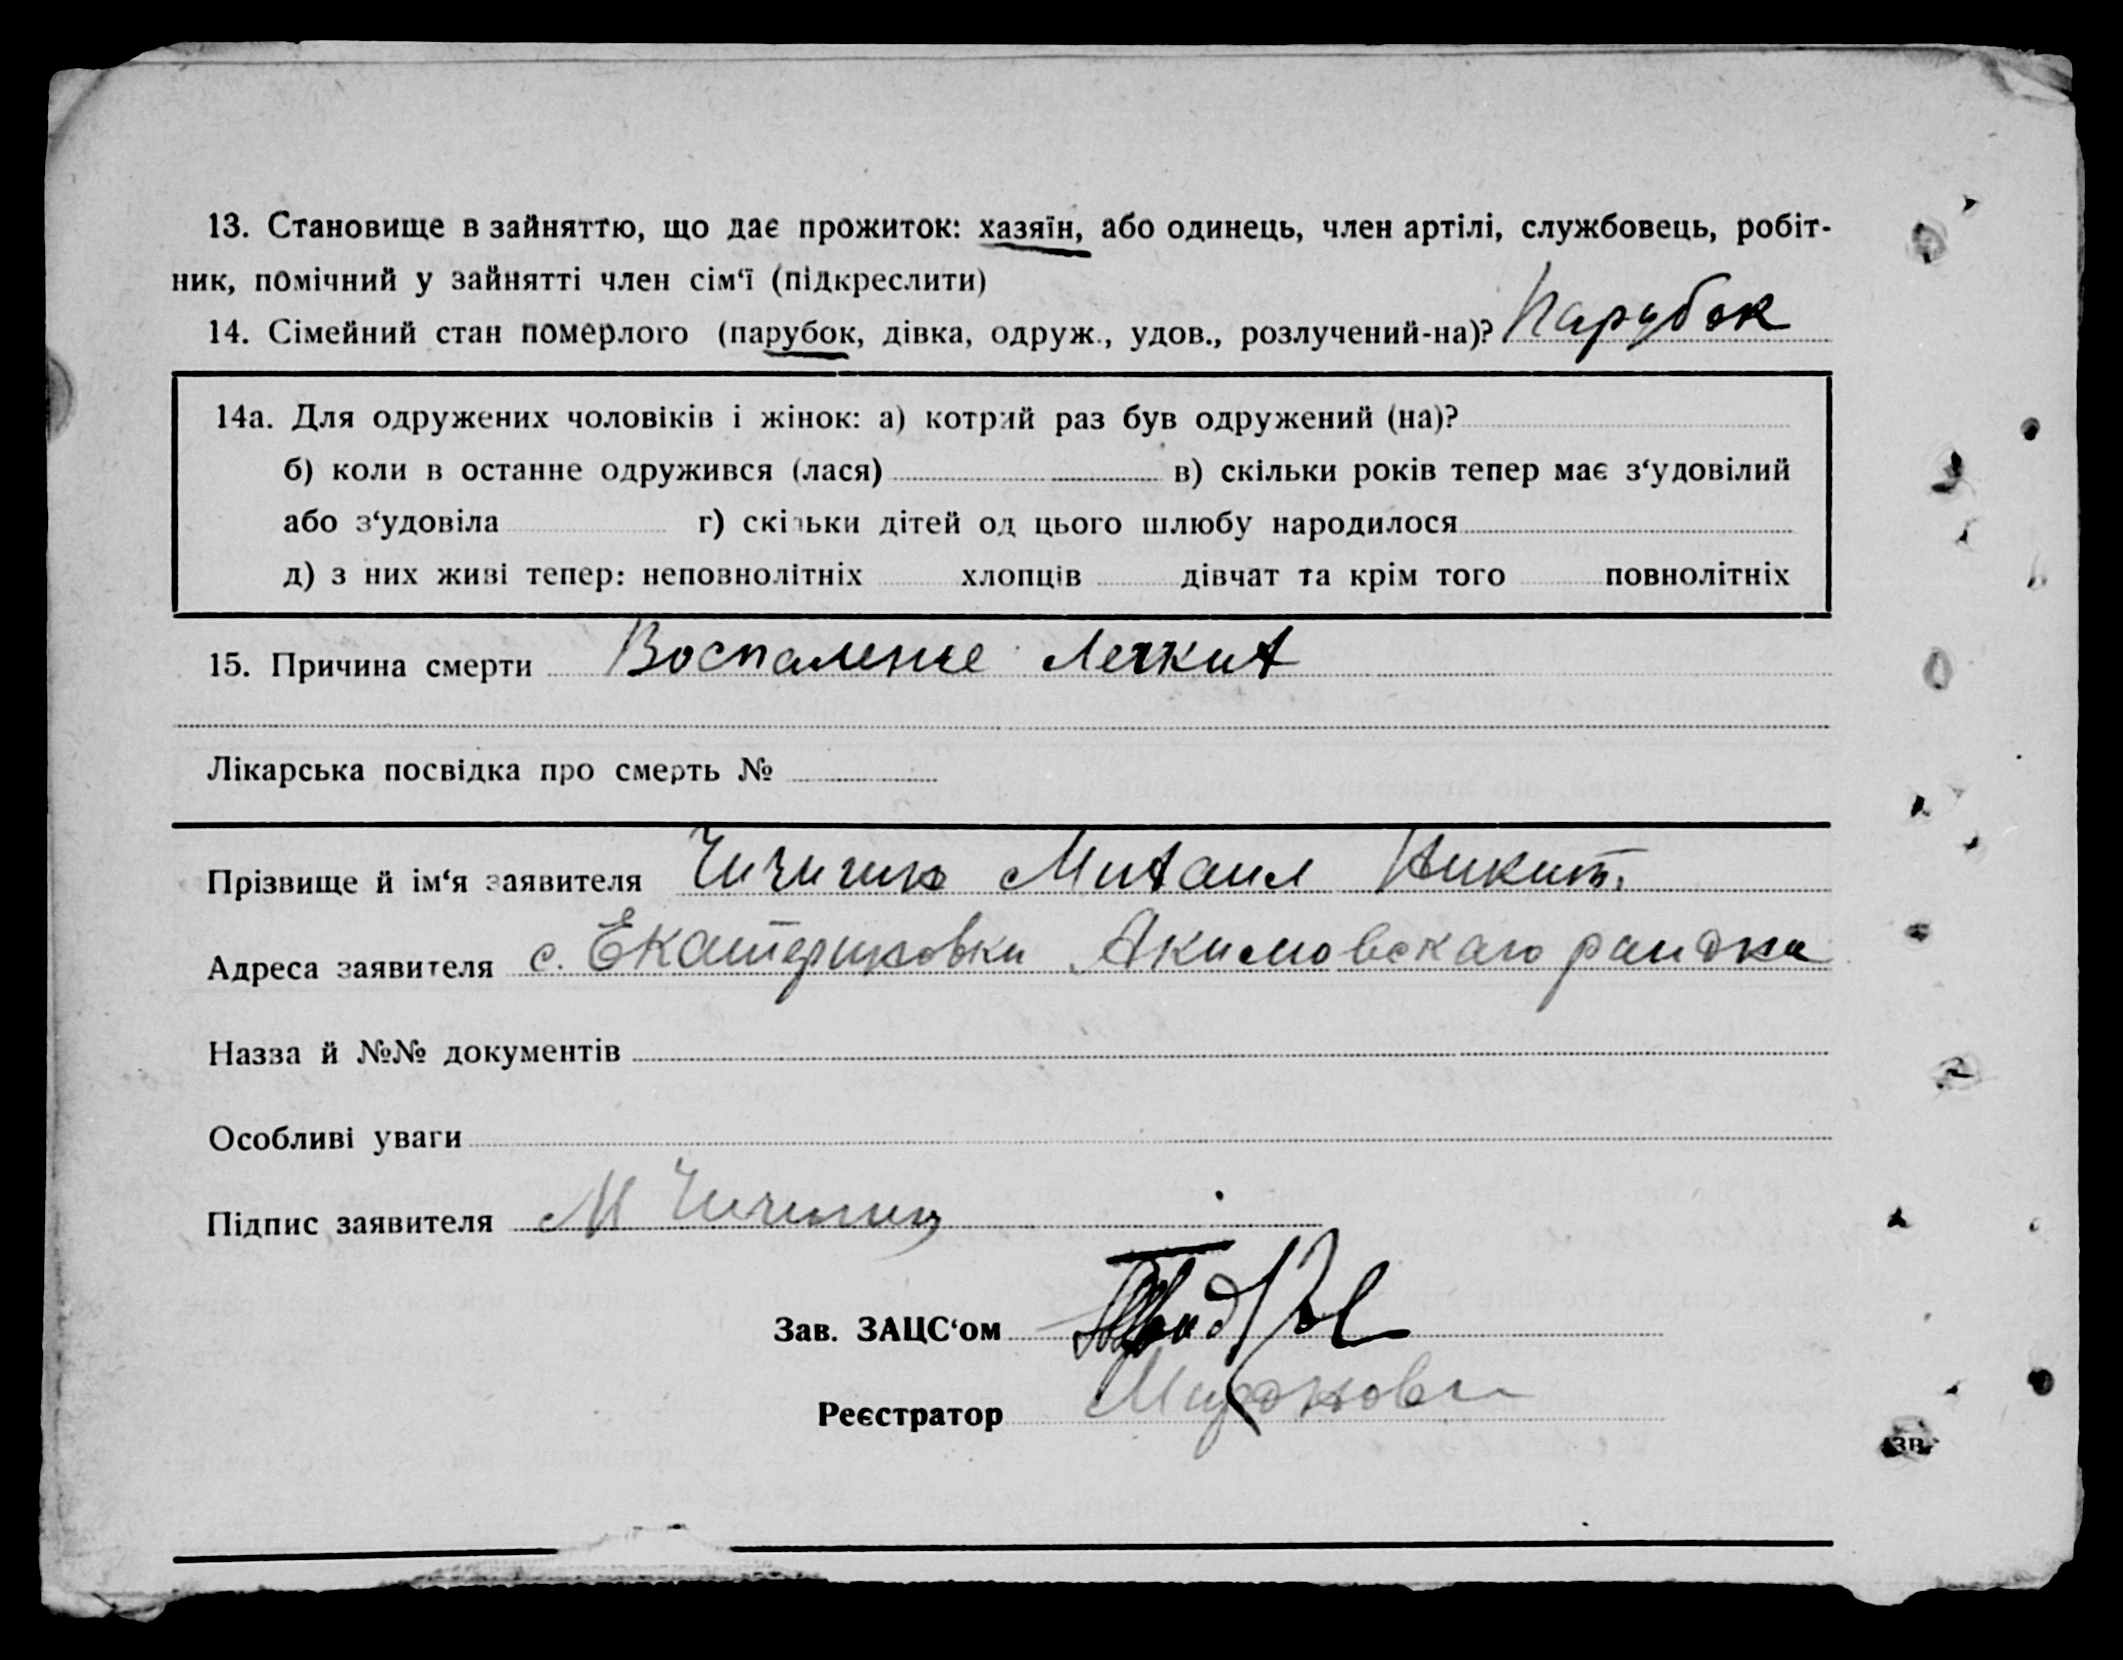 13. Становище в зайняттю, що дає прожиток: хазяїн, або одинець, член артілі, службовець, робіт-
ник, помічний у зайнятті член сім‘ї (підкреслити)
14. Сімейний стан померлого (парубок, дівка, одруж., удов., розлучений-на)? Парубок
14а. Для одружених чоловіків і жінок: а) котрий раз був одружений (на)?
б) коли в останнє одружився (лася) в) скільки років тепер має з‘удовілий
або з‘удовіла г) скільки дітей од цього шлюбу народилося
д) з них живі тепер: неповнолітніх хлопців дівчат та крім того повнолітніх
15. Причина смерти Воспаление Легких
Лікарська посвідка про смерть №
Прізвище й ім‘я заявителя Михаил Никит.
Адреса заявителя с. Екатериновки Акимовскаго района
Назва й №№ документів
Особливі уваги
Підпис заявителя М
Зав. ЗАЦС‘ом
Реєстратор
зв.